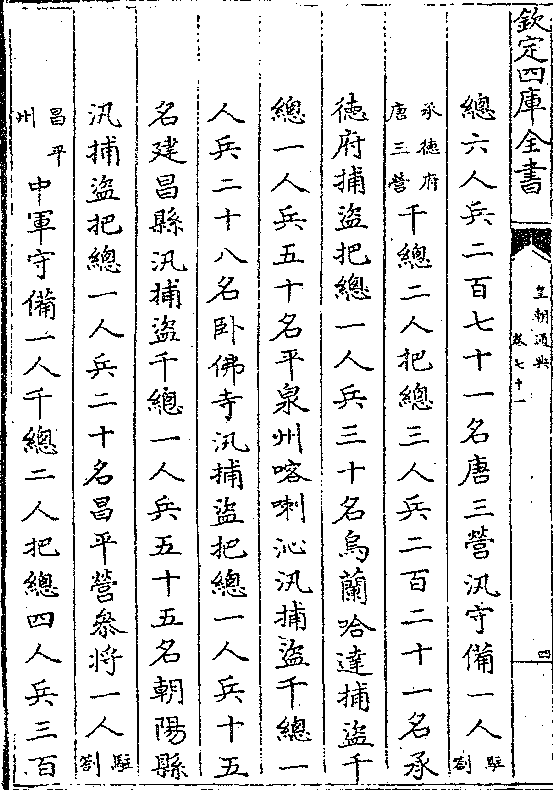 欽定四庫全書
皇朝通典
卷七十一
四
總六人兵二百七十一名唐三營汛守備一人駐劄
承徳府唐三營千總二人把總三人兵二百二十一名承
徳府捕盜把總一人兵三十名烏蘭哈達捕盜千
總一人兵五十名平泉州喀喇沁汛捕盜千總一
人兵二十八名卧佛寺汛捕盜把總一人兵十五
名建昌縣汛捕盜千總一人兵五十五名朝陽縣
汛捕盜把總一人兵二十名昌平營叅將一人駐劄
昌平州中軍守備一人千總二人把總四人兵三百